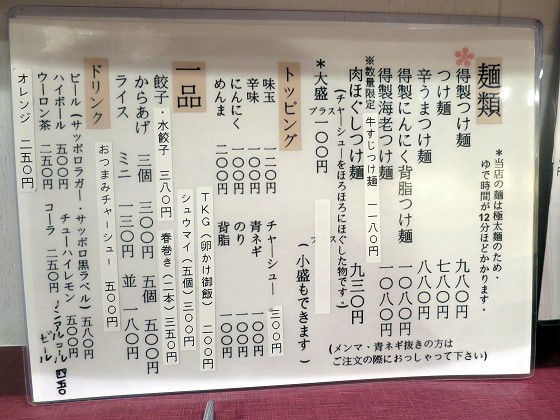 麺類
＊当店の麺は極太麺のため、
ゆで時間が12分ほどかかります。
得製つけ麺 九八〇円
つけ麺 七八〇円
辛うまつけ麺 八八〇円
得製にんにく背脂つけ麺 一〇八〇円
得製海老つけ麺 一〇八〇円
※数量限定 牛すじつけ麺 一一八〇円
肉ほぐしつけ麺 九三〇円
(チャーシューをほろほろにほぐした物です。)
＊大盛 プラス 一〇〇円
(小盛もできます)
(メンマ・青ネギ抜きの方は
ご注文の際におっしゃって下さい)
トッピング
味玉 一二〇円 チャーシュー 三〇〇円
辛味 一〇〇円 青ネギ 一〇〇円
にんにく 一〇〇円 のり 一〇〇円
めんま 二〇〇円 背脂 一〇〇円
一品
TKG(卵かけ御飯) 二〇〇円
シュウマイ(五個) 三〇〇円
餃子・水餃子 三八〇円 春巻き(二本) 三五〇円
からあげ 三個 三〇〇円 五個 五〇〇円
ライス ミニ 一三〇円 並 一八〇円
おつまみチャーシュー 五〇〇円
ドリンク
ビール(サッポロラガー・サッポロ黒ラベル) 五八〇円
ハイボール 五〇〇円 チューハイレモン 五〇〇円
ウーロン茶 二五〇円 コーラ 二五〇円
ノンアルコールビール
オレンジ 二五〇円